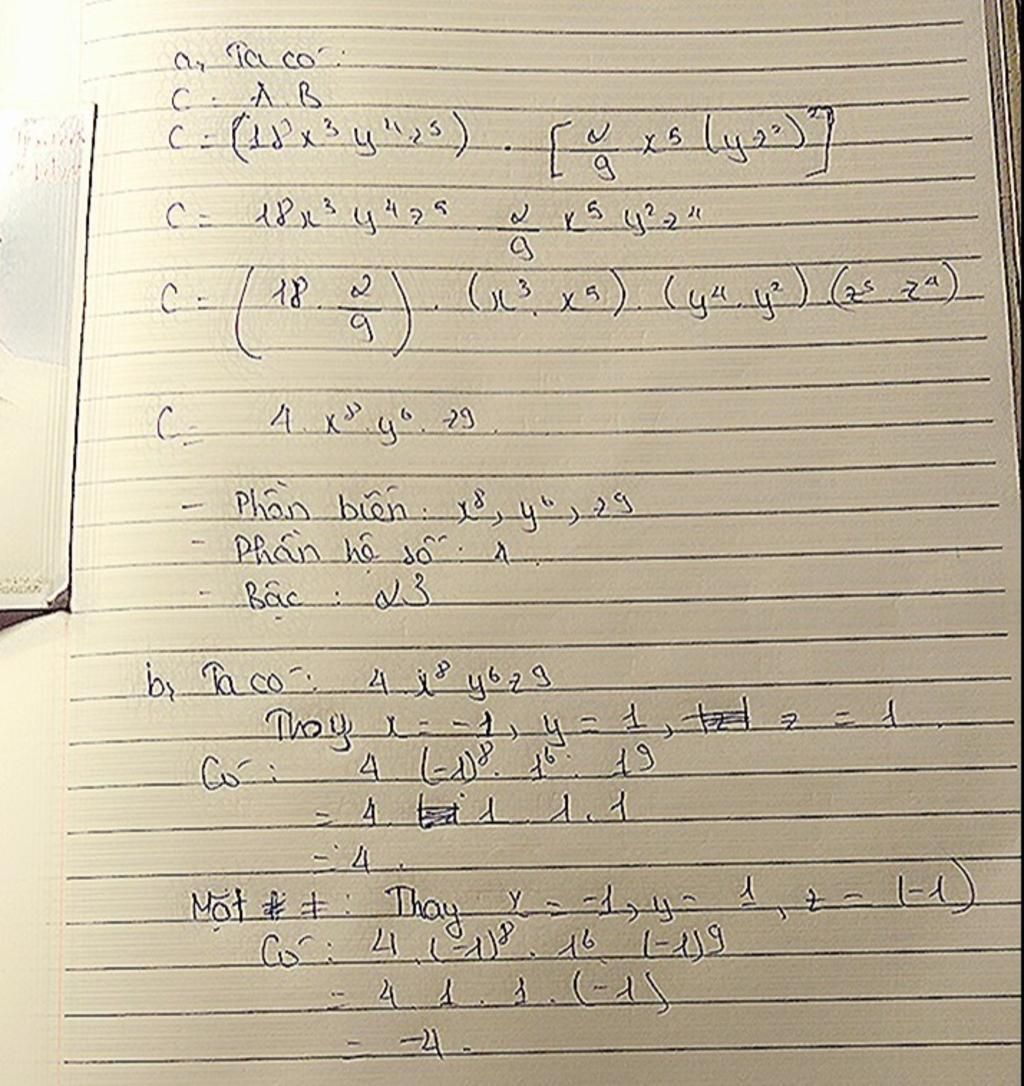 a, Ta có:
C = A.B
C = (18x³y⁴z⁵) . [2/9 x⁵ (yz²)²]
C = 18x³y⁴z⁵ . 2/9 x⁵y²z⁴
C = (18 . 2/9) . (x³.x⁵) . (y⁴.y²) (z⁵.z⁴)
C = 4.x⁸.y⁶.z⁹.
- Phần biến: x⁸, y⁶, z⁹
- Phần hệ số: 4.
- Bậc: 23
b, Ta có: 4.x⁸y⁶z⁹
Thay x = -1, y = 1, z = 1.
Có: 4.(-1)⁸.1⁶.1⁹
= 4.1.1.1
= 4.
Một ≠: Thay x = -1, y = 1, z = (-1)
Có: 4.(-1)⁸.1⁶.(-1)⁹
= 4.1.1.(-1)
= -4.